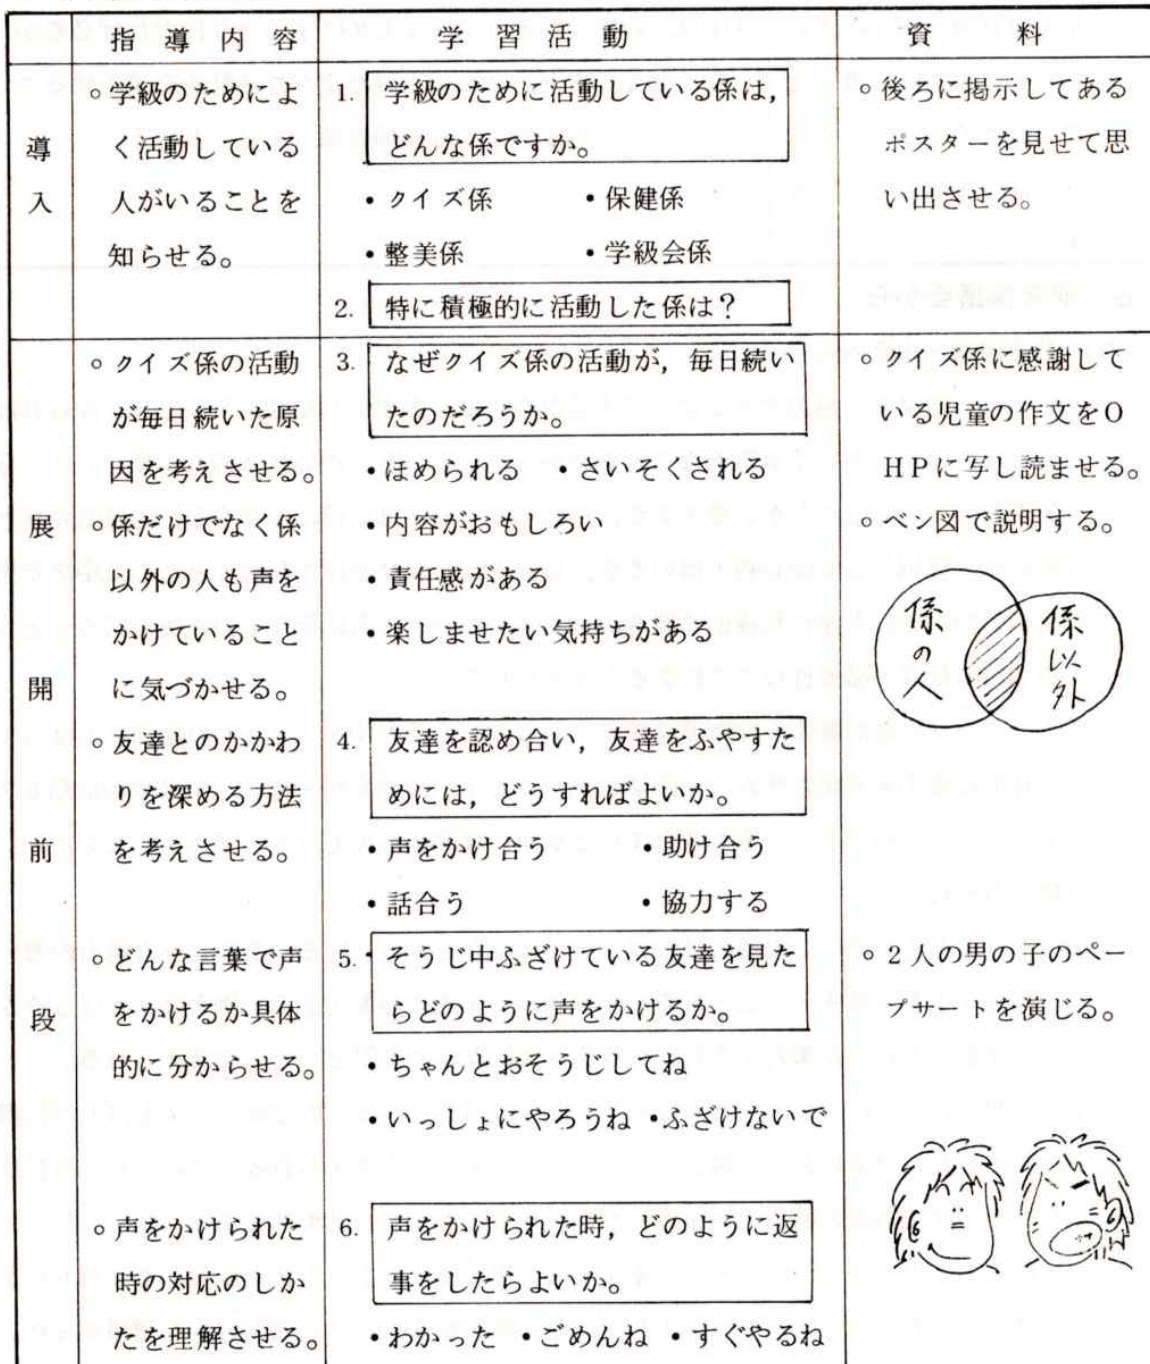 指導内容
学習活動
資料
導入
○学級のためによ
く活動している
人がいることを
知らせる。
1. 学級のために活動している係は，
どんな係ですか。
・クイズ係 ・保健係
・整美係 ・学級会係
2. 特に積極的に活動した係は？
○後ろに掲示してある
ポスターを見せて思
い出させる。
展開前段
○クイズ係の活動
が毎日続いた原
因を考えさせる。
○係だけでなく係
以外の人も声を
かけていること
に気づかせる。
○友達とのかかわ
りを深める方法
を考えさせる。
○どんな言葉で声
をかけるか具体
的に分からせる。
○声をかけられた
時の対応のしか
たを理解させる。
3. なぜクイズ係の活動が，毎日続い
たのだろうか。
・ほめられる ・さいそくされる
・内容がおもしろい
・責任感がある
・楽しませたい気持ちがある
4. 友達を認め合い，友達をふやすた
めには，どうすればよいか。
・声をかけ合う ・助け合う
・話合う ・協力する
5. そうじ中ふざけている友達を見た
らどのように声をかけるか。
・ちゃんとおそうじしてね
・いっしょにやろうね ・ふざけないで
6. 声をかけられた時，どのように返
事をしたらよいか。
・わかった ・ごめんね ・すぐやるね
○クイズ係に感謝して
いる児童の作文をO
HPに写し読ませる。
○ベン図で説明する。
係の人
係以外
○2人の男の子のペー
プサートを演じる。